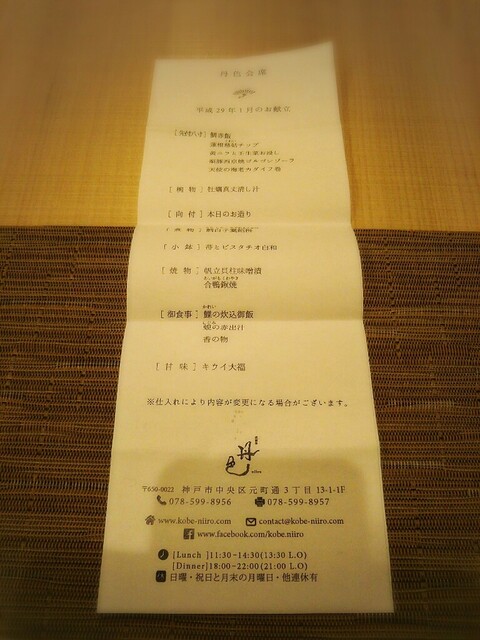 丹色会席
平成29年1月のお献立
[先付八寸] 鯛赤飯
蓮根慈姑チップ
天使の海老カダイフ巻
[椀物] 牡蠣真丈清し汁
[向付] 本日のお造り
[小鉢] 苺とピスタチオ白和
[焼物] 帆立貝柱味噌漬
合鴨鍬焼
[御食事] 鰈の炊込御飯
蜆の赤出汁
香の物
[甘味] キウイ大福
※仕入れにより内容が変更になる場合がございます。
丹色
niiro
〒650-0022 神戸市中央区元町通3丁目13-1-1F
078-599-8956 078-599-8957
www.kobe-niiro.com contact@kobe-niiro.com
www.facebook.com/kobe.niiro
[Lunch ]11:30-14:30(13:30 L.O)
[Dinner]18:00-22:00(21:00 L.O)
日曜・祝日と月末の月曜日・他連休有